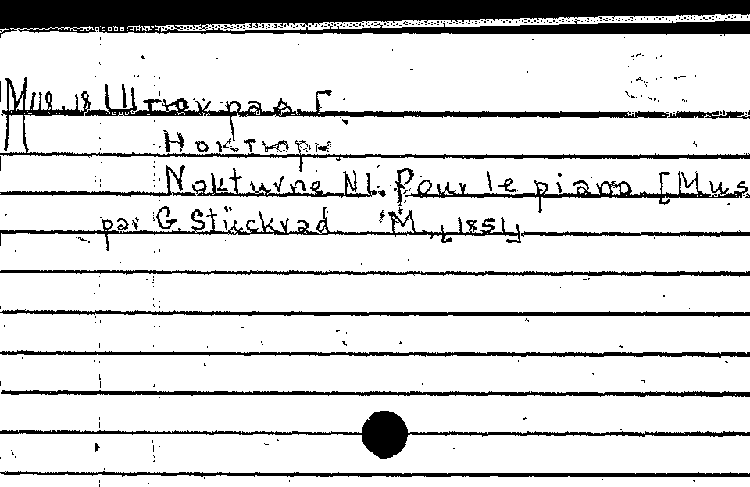 М 118.18 Штюкрад. Г.
Ноктюрн.
Nokturne N1. Pour le piano [Mus
par G. Stückrad М., [1851]